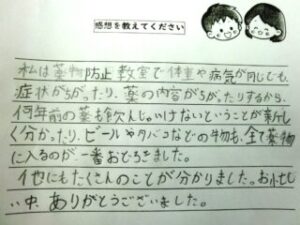 感想を教えてください
私は薬物防止教室で体重や病気が同じでも、
症状がちがったり、薬の内容がちがったりするから、
何年前の薬も飲んじゃいけないということが新し
く分かったり、ビールやタバコなどの物も、全て薬物
に入るのが一番おどろきました。
他にもたくさんのことが分かりました。お忙し
い中、ありがとうございました。